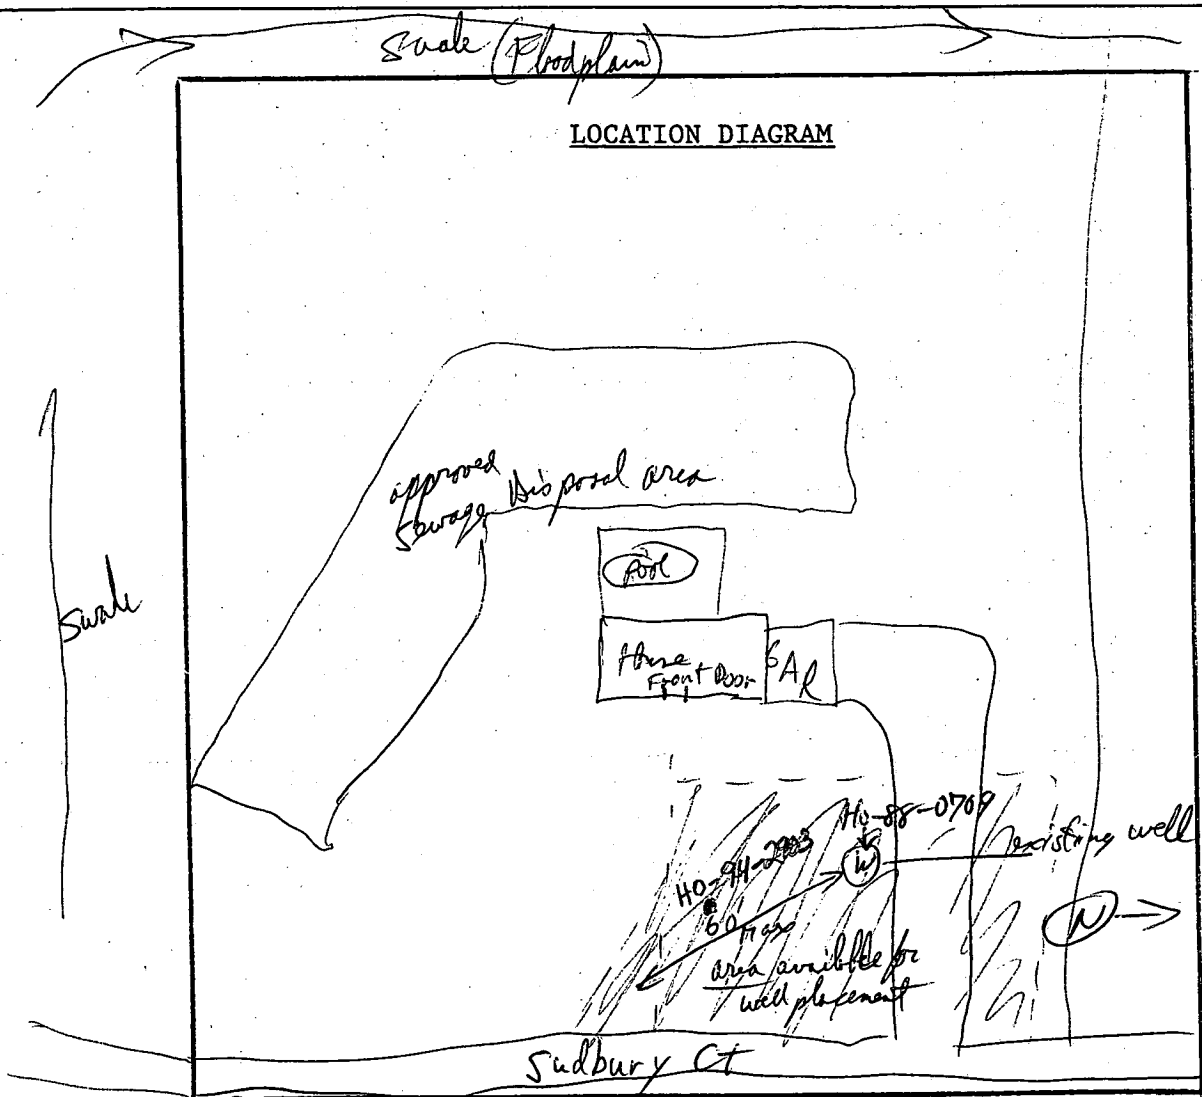 Swale (Floodplain)
LOCATION DIAGRAM
approved
Sewage Disposal area
Pool
Swale
House
Front Door
GAR
HO-88-0709
existing well
W
HO-94-2903
60' max
N
area available for
well placement
Sudbury Ct